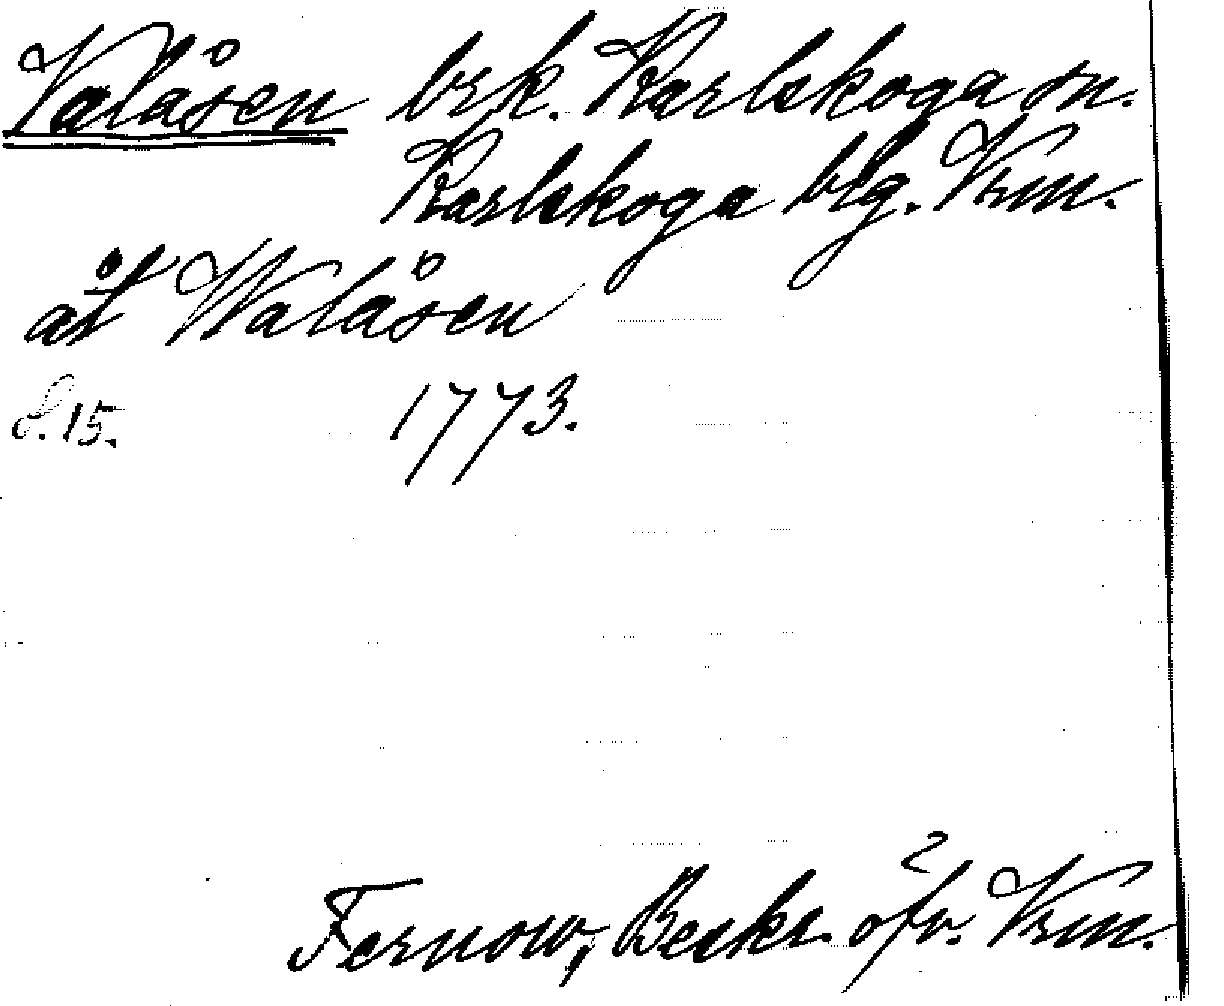 Valåsen brk. Karlskoga sn.
Karlskoga blg. Vrm.
åt Walåsen
s. 15. 1773.
Fernow, Beskr. öfv. Vrm.